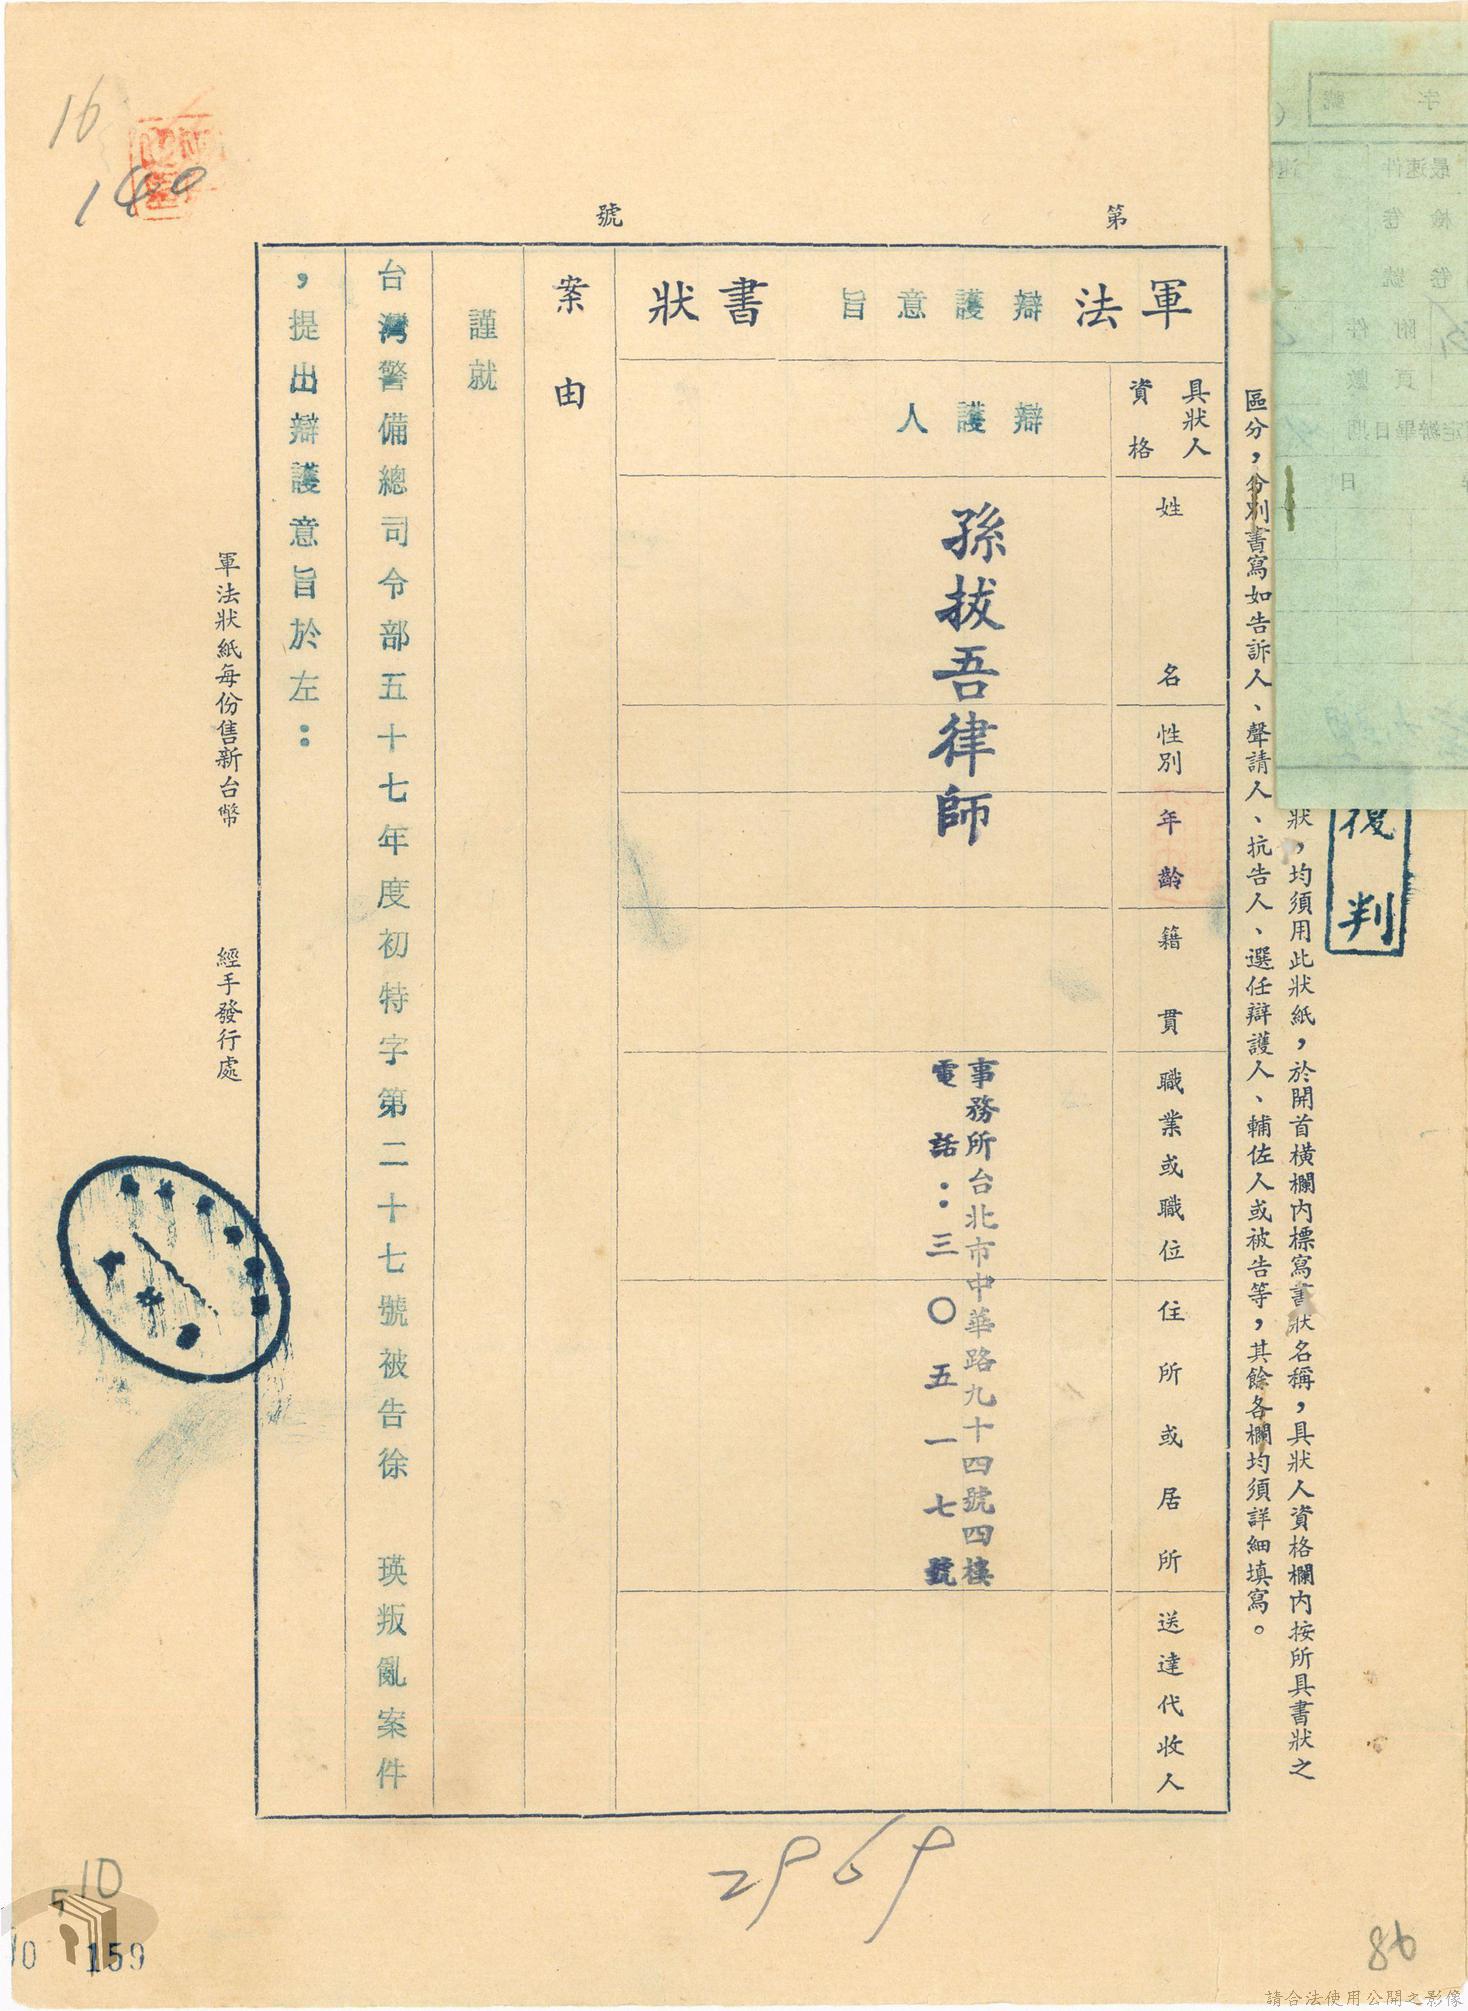 復判
狀，均須用此狀紙，於開首橫欄內標寫書狀名稱，具狀人資格欄內按所具書狀之
區分，分別書寫如告訴人、聲請人、抗告人、選任辯護人、輔佐人或被告等，其餘各欄均須詳細填寫。
第　　　號
軍法辯護意旨書狀
具狀人資格
辯護人
姓名
孫拔吾律師
性別
年齡
籍貫
職業或職位
住所或居所
事務所台北市中華路九十四號四樓
電話：三〇五一七號
送達代收人
案由
謹就
台灣警備總司令部五十七年度初特字第二十七號被告徐　瑛叛亂案件
，提出辯護意旨於左：
軍法狀紙每份售新台幣　　　經手發行處
字　號
最速件
檢卷
卷號
附件
頁數
日
16
149
2969
86
10
159
請合法使用公開之影像